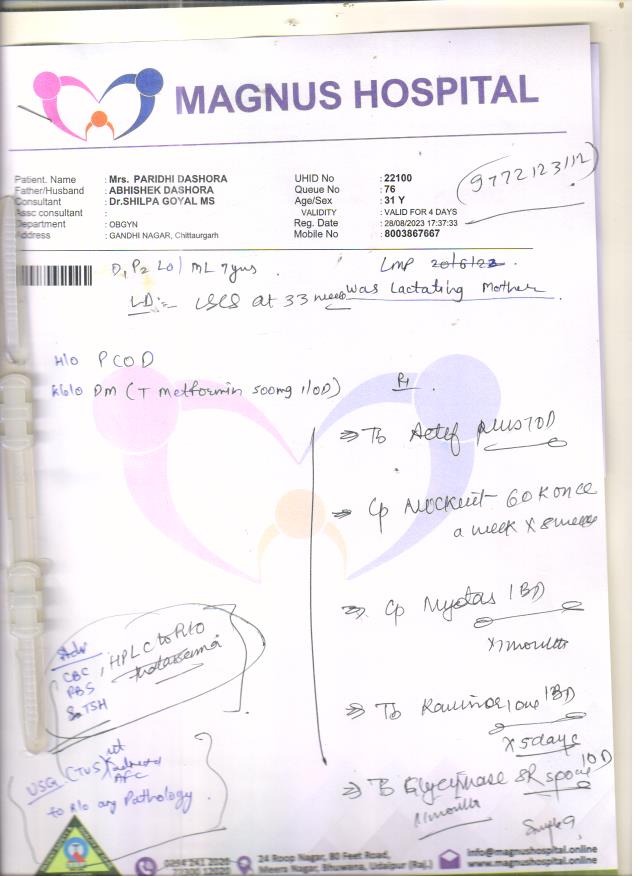 MAGNUS HOSPITAL
Patient. Name : Mrs. PARIDHI DASHORA
Father/Husband : ABHISHEK DASHORA
Consultant : Dr.SHILPA GOYAL MS
Assc consultant :
Department : OBGYN
Address : GANDHI NAGAR, Chittaurgarh
UHID No : 22100
Queue No : 76
Age/Sex : 31 Y
VALIDITY : VALID FOR 4 DAYS
Reg. Date : 28/08/2023 17:37:33
Mobile No : 8003867667
9772123112
L0/ ML 7yrs.
LMP 20/6/23.
LD:- LSCS at 33 week
was Lactating Mother
H/o PCOD
K/c/o DM (T metformin 500mg 1/OD)
Rx.
Tb plus 1OD
Cp 60K once
a week X 8 weeks
Cp 1BD
X 1 month
Tb 1BD
X 5 days
Tb Glyciphase SR 500 1OD
1 month
Adv
CBC
PBS
S. TSH
, HPLC to R/o
USG (TVS)
AFC
to R/o any Pathology.
0294 241 2020
77300 12020
24 Roop Nagar, 80 Feet Road,
Meera Nagar, Bhuwana, Udaipur (Raj.)
info@magnushospital.online
www.magnushospital.online